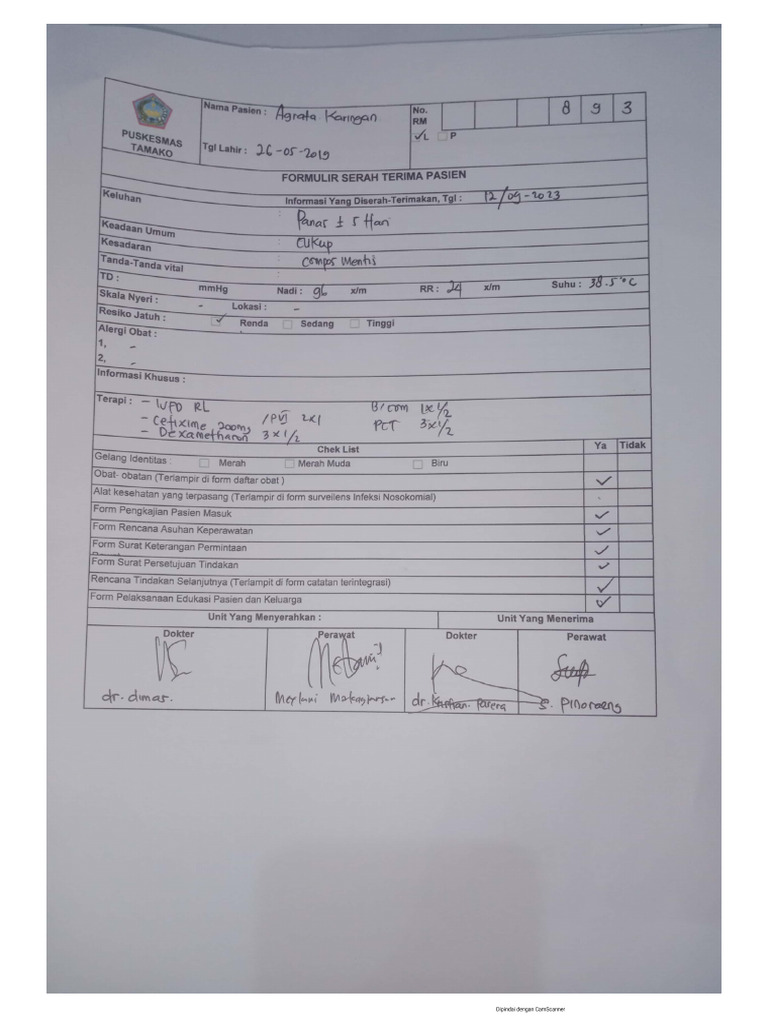 PUSKESMAS
TAMAKO
Nama Pasien : Agrata Karingan
No.
RM
8 9 3
✓L P
Tgl Lahir : 26-05-2019
FORMULIR SERAH TERIMA PASIEN
Keluhan
Informasi Yang Diserah-Terimakan, Tgl : 12/09-2023
: Panas ± 5 Hari
Keadaan Umum
: Cukup
Kesadaran
: Compos Mentis
Tanda-Tanda vital
TD : mmHg Nadi : 96 x/m RR : 24 x/m Suhu : 38.5 °C
Skala Nyeri : - Lokasi : -
Resiko Jatuh : ✓ Renda Sedang Tinggi
Alergi Obat :
1, -
2, -
Informasi Khusus :
Terapi : - IVFD RL B/com 1x1/2
- Cefixime 200mg 2x1 PCT 3x1/2
- Dexametharon 3x1/2
Chek List Ya Tidak
Gelang Identitas : Merah Merah Muda Biru
Obat- obatan (Terlampir di form daftar obat ) ✓
Alat kesehatan yang terpasang (Terlampir di form surveilens Infeksi Nosokomial)
Form Pengkajian Pasien Masuk ✓
Form Rencana Asuhan Keperawatan ✓
Form Surat Keterangan Permintaan ✓
Form Surat Persetujuan Tindakan ✓
Rencana Tindakan Selanjutnya (Terlampit di form catatan terintegrasi) ✓
Form Pelaksanaan Edukasi Pasien dan Keluarga ✓
Unit Yang Menyerahkan : Unit Yang Menerima
Dokter Perawat Dokter Perawat
dr. dimas. Meylani dr. S. Pinoraeng
Dipindai dengan CamScanner